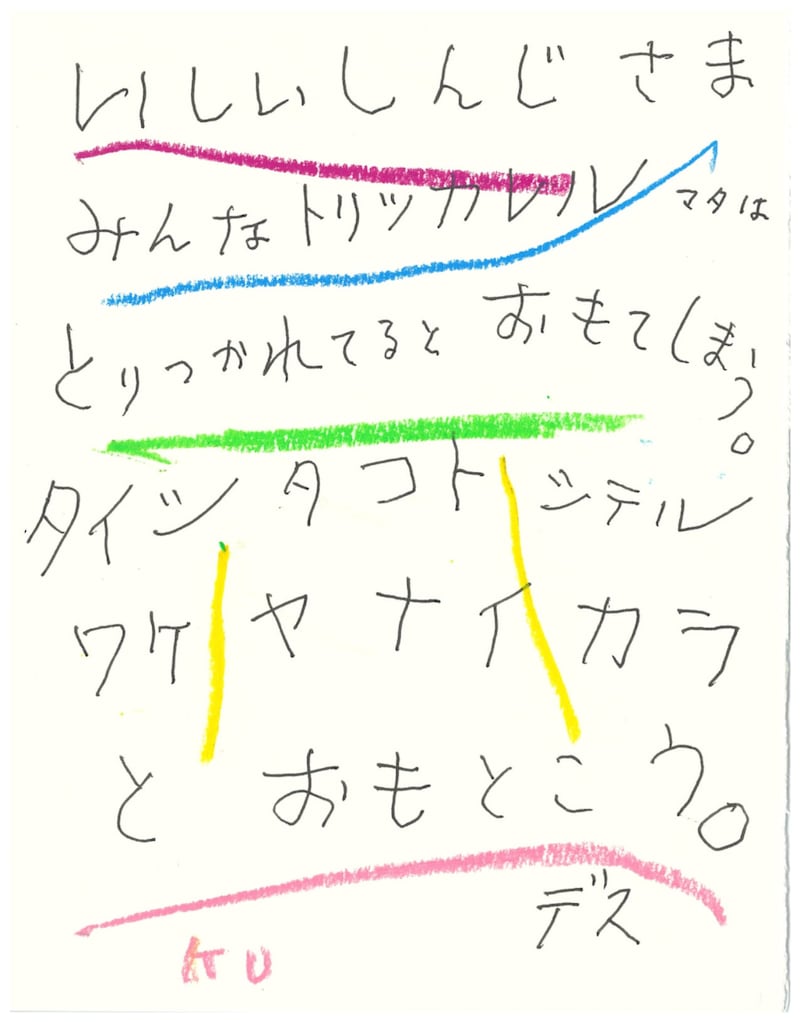 いしいしんじ さま
みんな トリツカレル マタは
とりつかれてると おもてしまう。
タイシ タ コト シテル
ワケ ヤ ナイ カラ
と おもとこう。
デス